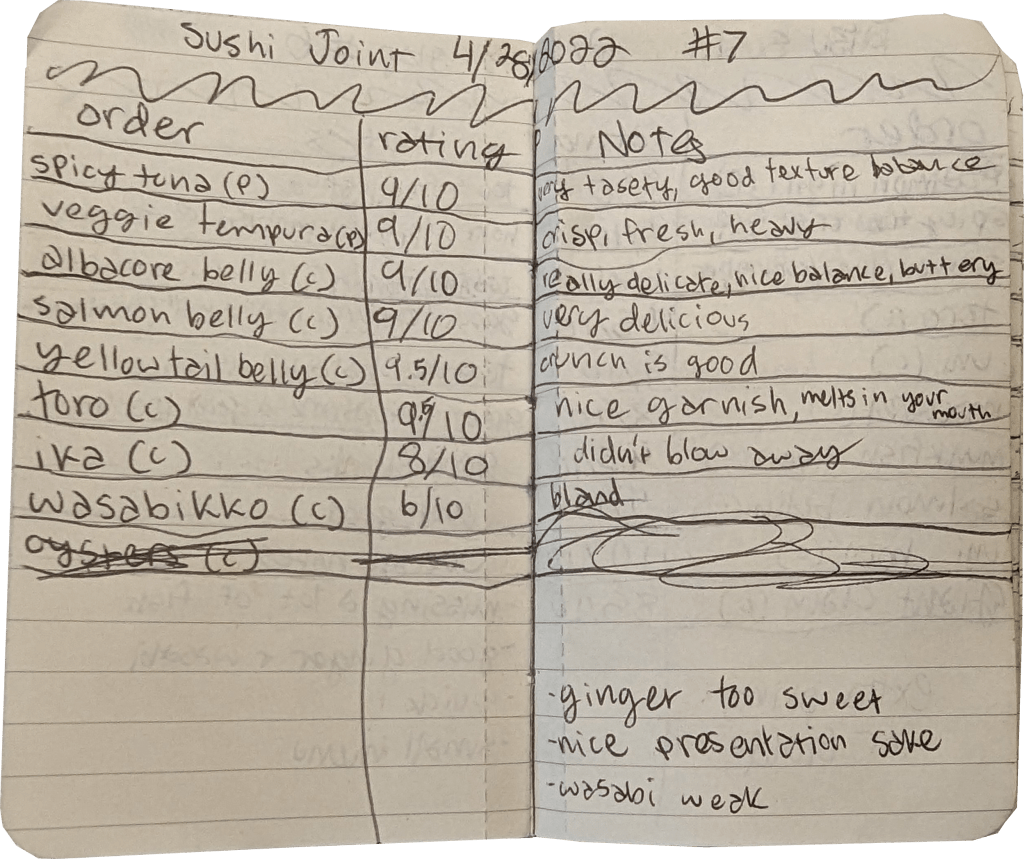 Sushi Joint 4/28/2022 #7
order rating Notes
spicy tuna (P) 9/10 very tasety, good texture balance
veggie tempura (P) 9/10 crisp, fresh, heavy
albacore belly (c) 9/10 really delicate, nice balance, buttery
salmon belly (c) 9/10 very delicious
yellowtail belly (c) 9.5/10 crunch is good
toro (c) 9.5/10 nice garnish, melts in your mouth
ika (c) 8/10 didn't blow away
wasabikko (c) 6/10 bland
oysters (c)
-ginger too sweet
-nice presentation sake
-wasabi weak